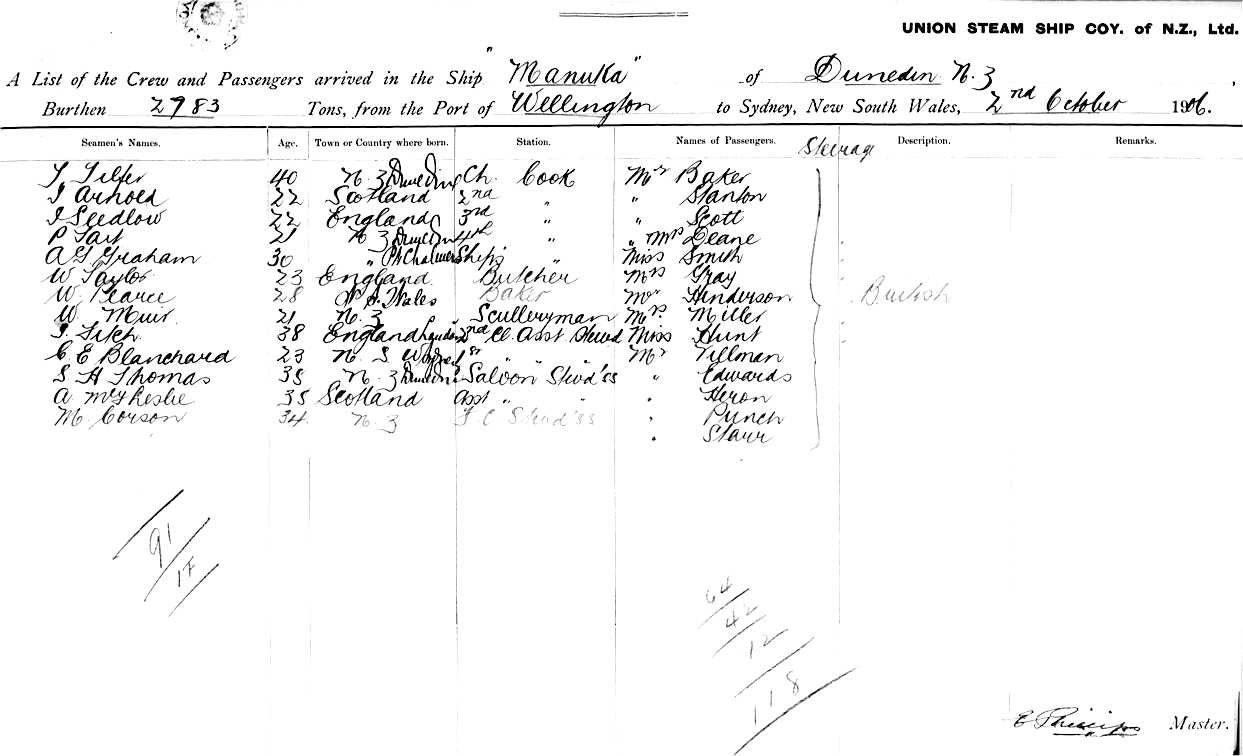 UNION STEAM SHIP COY. of N.Z., Ltd.
A List of the Crew and Passengers arrived in the Ship "Manuka" of Dunedin N.Z
Burthen 2783 Tons, from the Port of Wellington to Sydney, New South Wales, 2nd October 1906.
Seamen's Names. Age. Town or Country where born. Station. Names of Passengers. Steerage Description. Remarks.
40 N.Z Dunedin Ch. Cook Mr Baker
Arnold 22 Scotland 2nd " " Stanton
22 England 3rd " " Scott
P 21 N.Z Dunedin 4th " " Mrs Deane
A G Graham 30 " Pt Chalmers Ships " Miss Smith
W Taylor 23 England Butcher Mrs Gray
W. Pearce 28 N.S. Wales Baker Mr Henderson British
W. Muir 21 N.Z Scullery man Mrs. Miller
38 England London 2nd Cl. Asst Stewd Miss Hunt
C E Blanchard 23 N. S 1st " " " Mr Tillman
S H Thomas 35 N.Z Dunedin Saloon Stwd'ss " Edwards
A 35 Scotland Asst " " " Heron
M. Corson 34 N.Z F C Stwd'ss " Punch
" Starr
91
17
64
42
12
118
E Phillips Master.